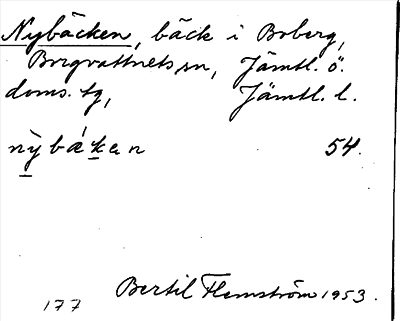 Nybäcken, bäck i Boberg,
Borgvattnets sn, Jämtl. ö.
doms. tg, Jämtl. l.
nỳbákan 54.
Bertil Flemström 1953.
177